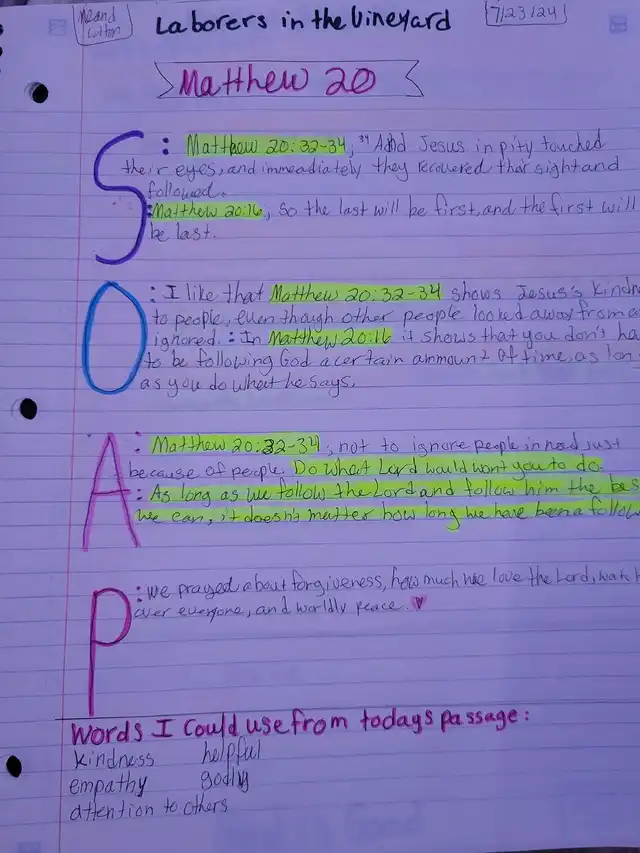 Me and
Cotton
Laborers in the Vineyard
7/23/24
Matthew 20
S
: Matthew 20:32-34, 34 And Jesus in pity touched
their eyes, and immeadiately they recovered thair sight and
followed.
: Matthew 20:16, So the last will be first, and the first will
be last.
O
: I like that Matthew 20:32-34 shows Jesus's kindn
to people, even though other people looked away from a
ignored. : In Matthew 20:16 it shows that you don't ha
to be following God a certain ammount of time, as long
as you do what he says.
A
: Matthew 20:32-34, not to ignore people in need just
because of people. Do what Lord would want you to do.
: As long as we follow the Lord and follow him the bes
we can, it doesn't matter how long we have been a follow
P
: we prayed about forgiveness, how much we love the Lord, watch
over everyone, and worldly peace. ♥
Words I Could use from todays passage:
kindness helpful
empathy godly
attention to others